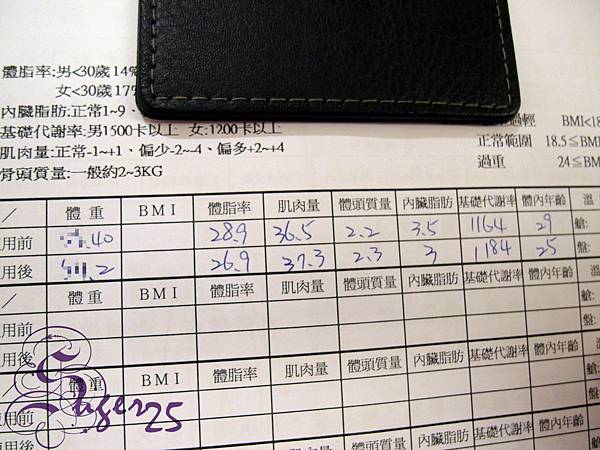 體脂率:男<30歲14%
女<30歲17%
內臟脂肪:正常1~9、
基礎代謝率:男1500卡以上 女:1200卡以上
肌肉量:正常-1~+1、偏少-2~-4、偏多+2~+4
骨頭質量:一般約2~3KG
過輕 BMI<18
正常範圍 18.5≦BMI
過重 24≦BMI
/ 體重 BMI 體脂率 肌肉量 體頭質量 內臟脂肪 基礎代謝率 體內年齡 溫
使用前 .40 28.9 36.5 2.2 3.5 1164 29 艙:
使用後 .2 26.9 37.3 2.3 3 1184 25 盤:
/ 體重 BMI 體脂率 肌肉量 體頭質量 內臟脂肪 基礎代謝率 體內年齡 溫
使用前 艙:
使用後 盤:
/ 體重 BMI 體脂率 肌肉量 體頭質量 內臟脂肪 基礎代謝率 體內年齡 溫
使用前 艙:
使用後